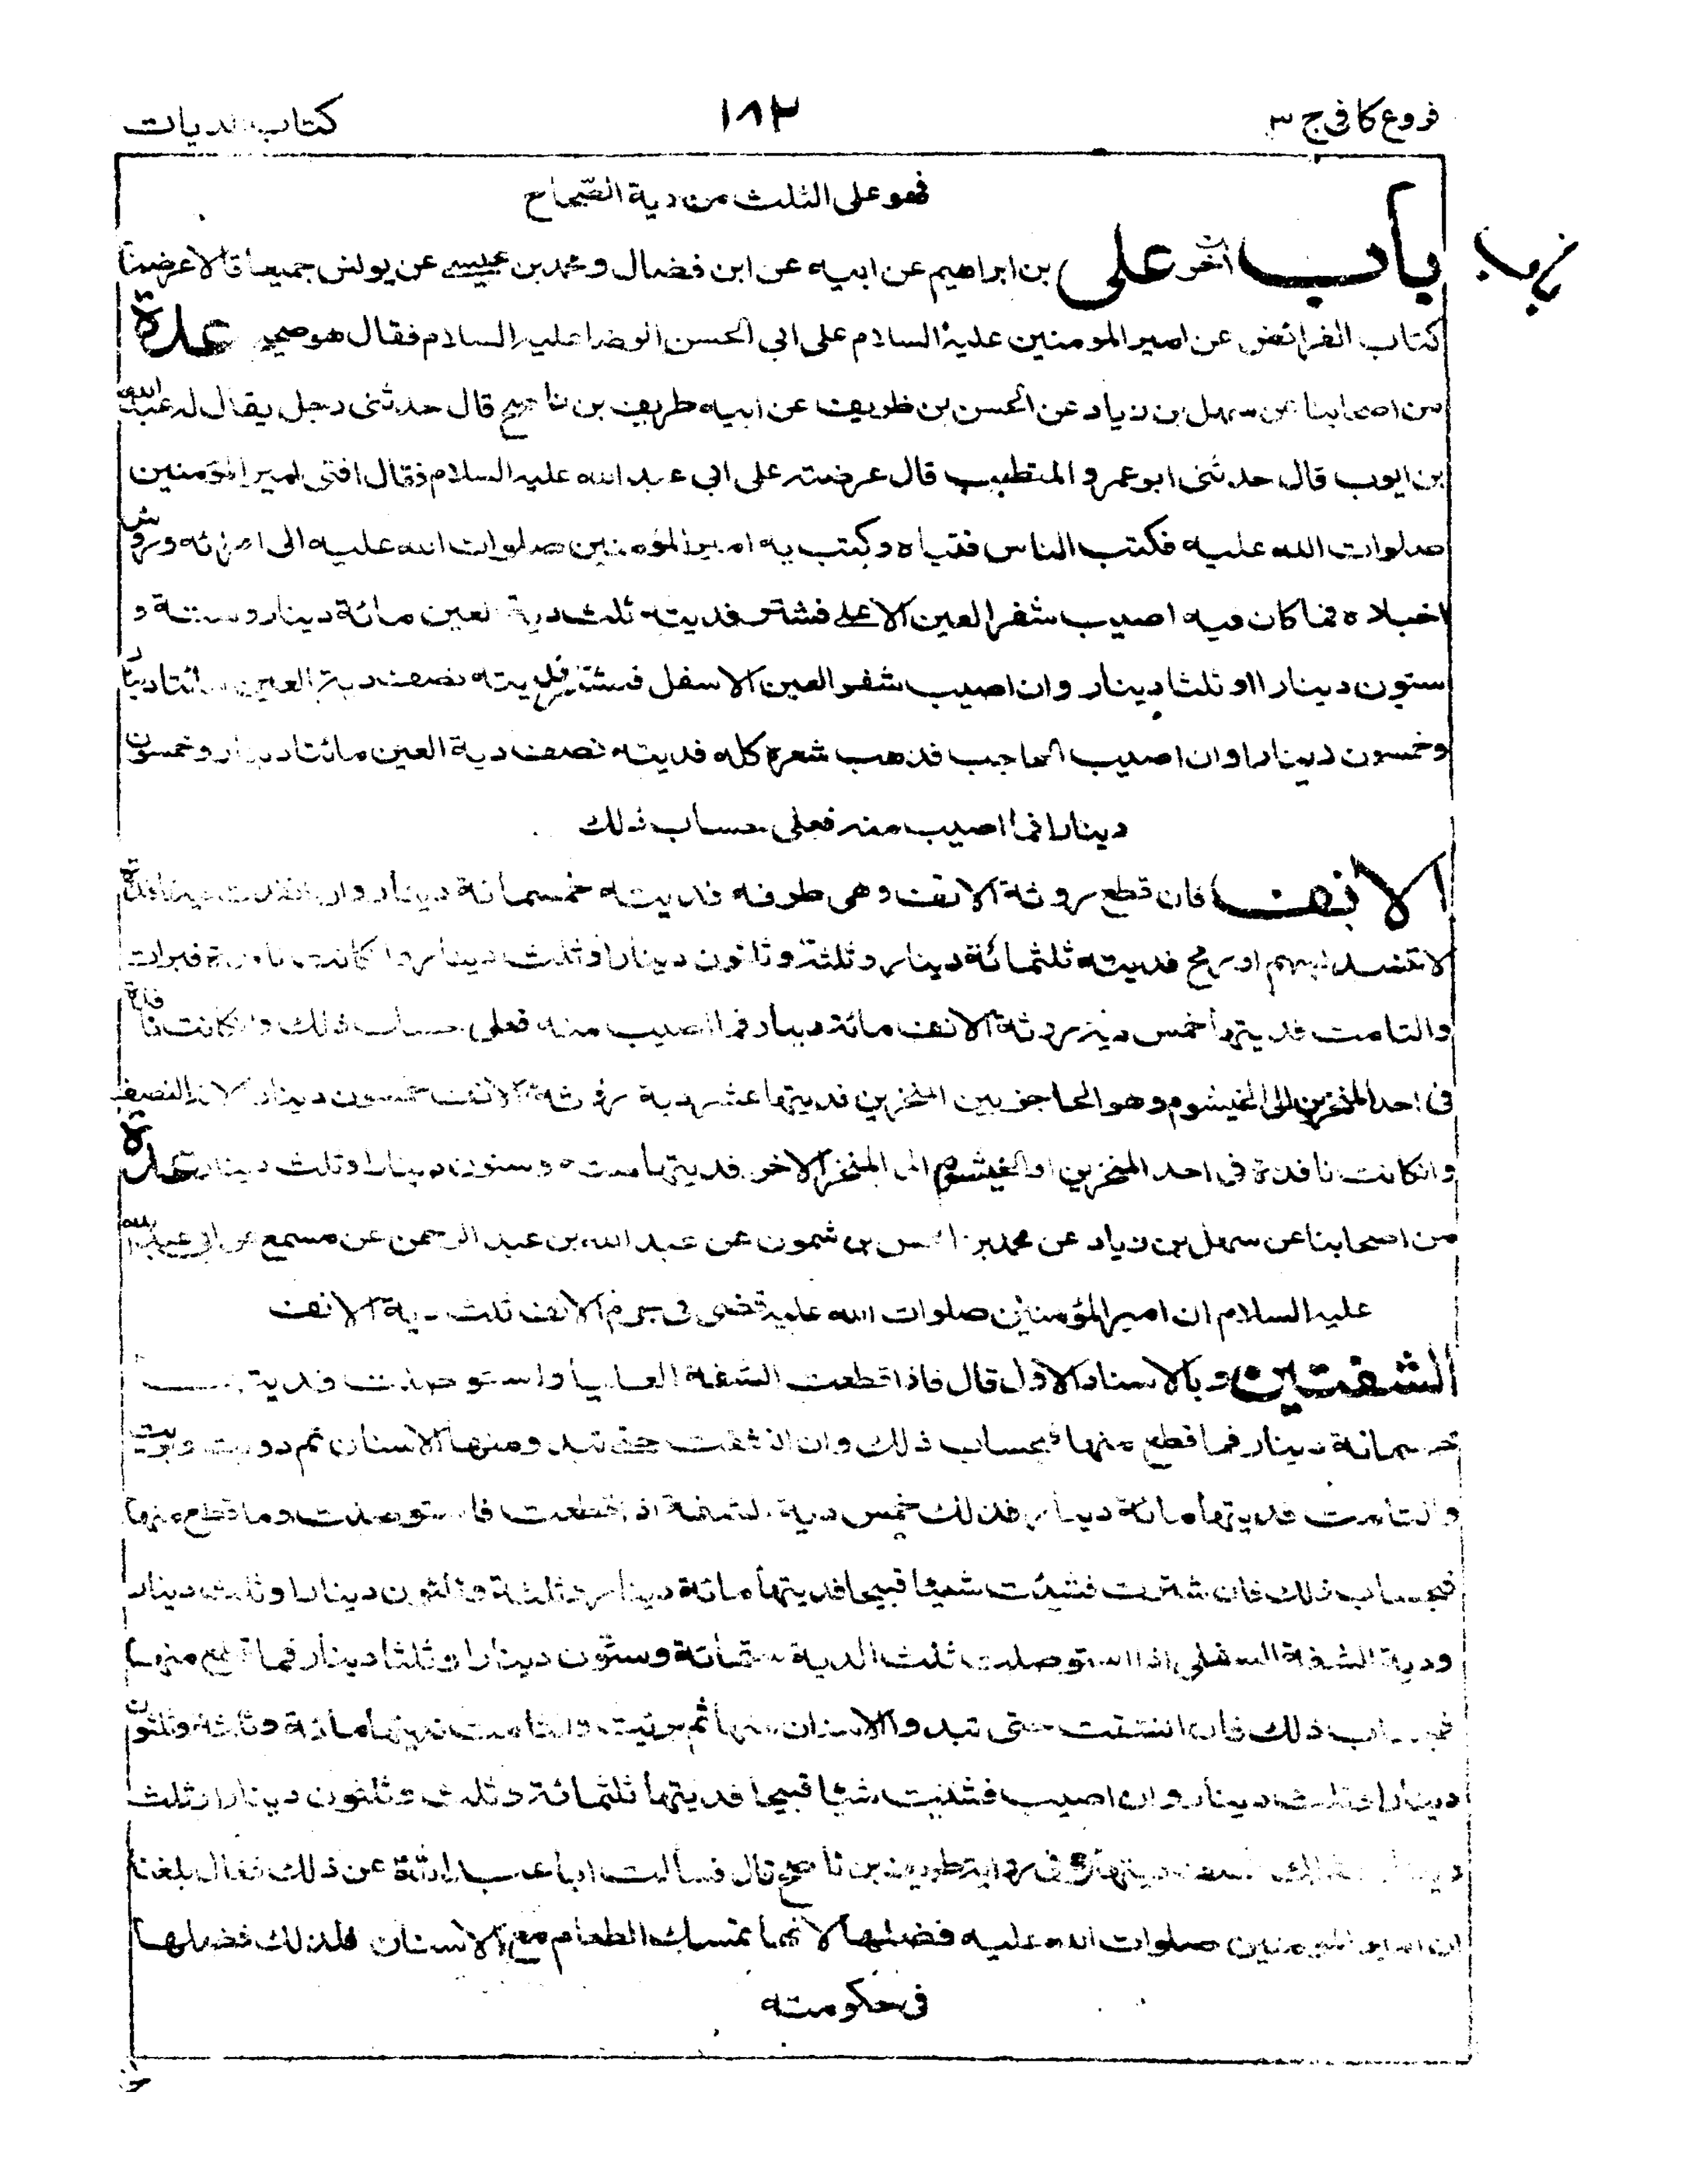 فروع كافي ج ٣
١٨٢
كتاب الديات
فهو على الثلث من دية الصّحاح
باب آخر على بن ابراهيم عن ابيه عن ابن فضال و محمد بن عيسى عن يونس جميعا قالا عرضنا
كتاب الفرائض عن امير المومنين عليه السلام على ابي الحسن الرضا عليه السلام فقال هو صحيح عدة
من اصحابنا عن سهل بن زياد عن الحسن بن ظريف عن ابيه ظريف بن ناصح قال حدثنى رجل يقال له عبد الله
بن ايوب قال حدثنى ابو عمرو المتطبب قال عرضته على ابي عبد الله عليه السلام فقال افتى امير المؤمنين
صلوات الله عليه فكتب الناس فتياه وكتب به امير المؤمنين صلوات الله عليه الى امرائه ورؤس
اخبلاده فما كان فيه اصيب شفر العين الاعلى فشتر فديته ثلث دية العين مائة دينار وستة و
ستون دينارا وثلثا دينار وان اصيب شفر العين الاسفل فشتر فديته نصف دية العين مائتا دينار
وخمسون دينارا وان اصيب الحاجب فذهب شعره كله فديته نصف دية العين مائتا دينار وخمسون
دينارا فما اصيب منه فعلى حساب ذلك
الانف فان قطع روثة الانف وهى طرفه فديته خمسمائة دينار وان نفذت فيه نافذة
لا تنسد بسهم او رمح فديته ثلثمائة دينار وثلثة وثلثون دينارا وثلث دينار وان كانت نافذة فبرات
والتامت فديتها خمس دية روثة الانف مائة دينار فما اصيب منه فعلى حساب ذلك وان كانت نافذة
فى احد المنخرين الى الخيشوم وهو الحاجز بين المنخرين فديتها عشر دية روثة الانف خمسون دينارا لانه النصف
وانكانت نافذة فى احد المنخرين او الخيشوم الى المنخر الاخر فديتها ستة وستون دينارا وثلث دينار عدة
من اصحابنا عن سهل بن زياد عن محمد بن الحسن بن شمون عن عبد الله بن عبد الرحمن عن مسمع عن ابى عبد الله
عليه السلام ان امير المؤمنين صلوات الله عليه قضى فى خرم الانف ثلث دية الانف
الشفتين وبالاسناد الاول قال فاذا قطعت الشفة العليا واستوصلت فديتها
خمسمائة دينار فما قطع منها فبحساب ذلك وان انشقت حتى تبدو منها الاسنان ثم دويت وبرئت
والتأمت فديتها مائة دينار فذلك خمس دية الشفة اذا قطعت فاستوصلت وما قطع منها
فبحساب ذلك فان شترت فشينت شينا قبيحا فديتها مائة دينار وثلثة وثلثون دينارا وثلث دينار
ودية الشفة السفلى اذا استوصلت ثلثا الدية ستمائة وستون دينارا وثلثا دينار فما قطع منها
فبحساب ذلك فان انشقت حتى تبدو الاسنان منها ثم برئت والتامت فديتها مائة وثلثة وثلثون
دينارا وثلث دينار وان اصيب فشينت شينا قبيحا فديتها ثلثمائة وثلث وثلثون دينارا وثلث
دينار وذلك نصف ديتها وفى رواية ظريف بن ناصح قال فسألت ابا عبد الله عن ذلك فقال بلغنا
ان امير المومنين صلوات الله عليه فضلها لانها تمسك الطعام مع الاسنان فلذلك فضلها
فى حكومته